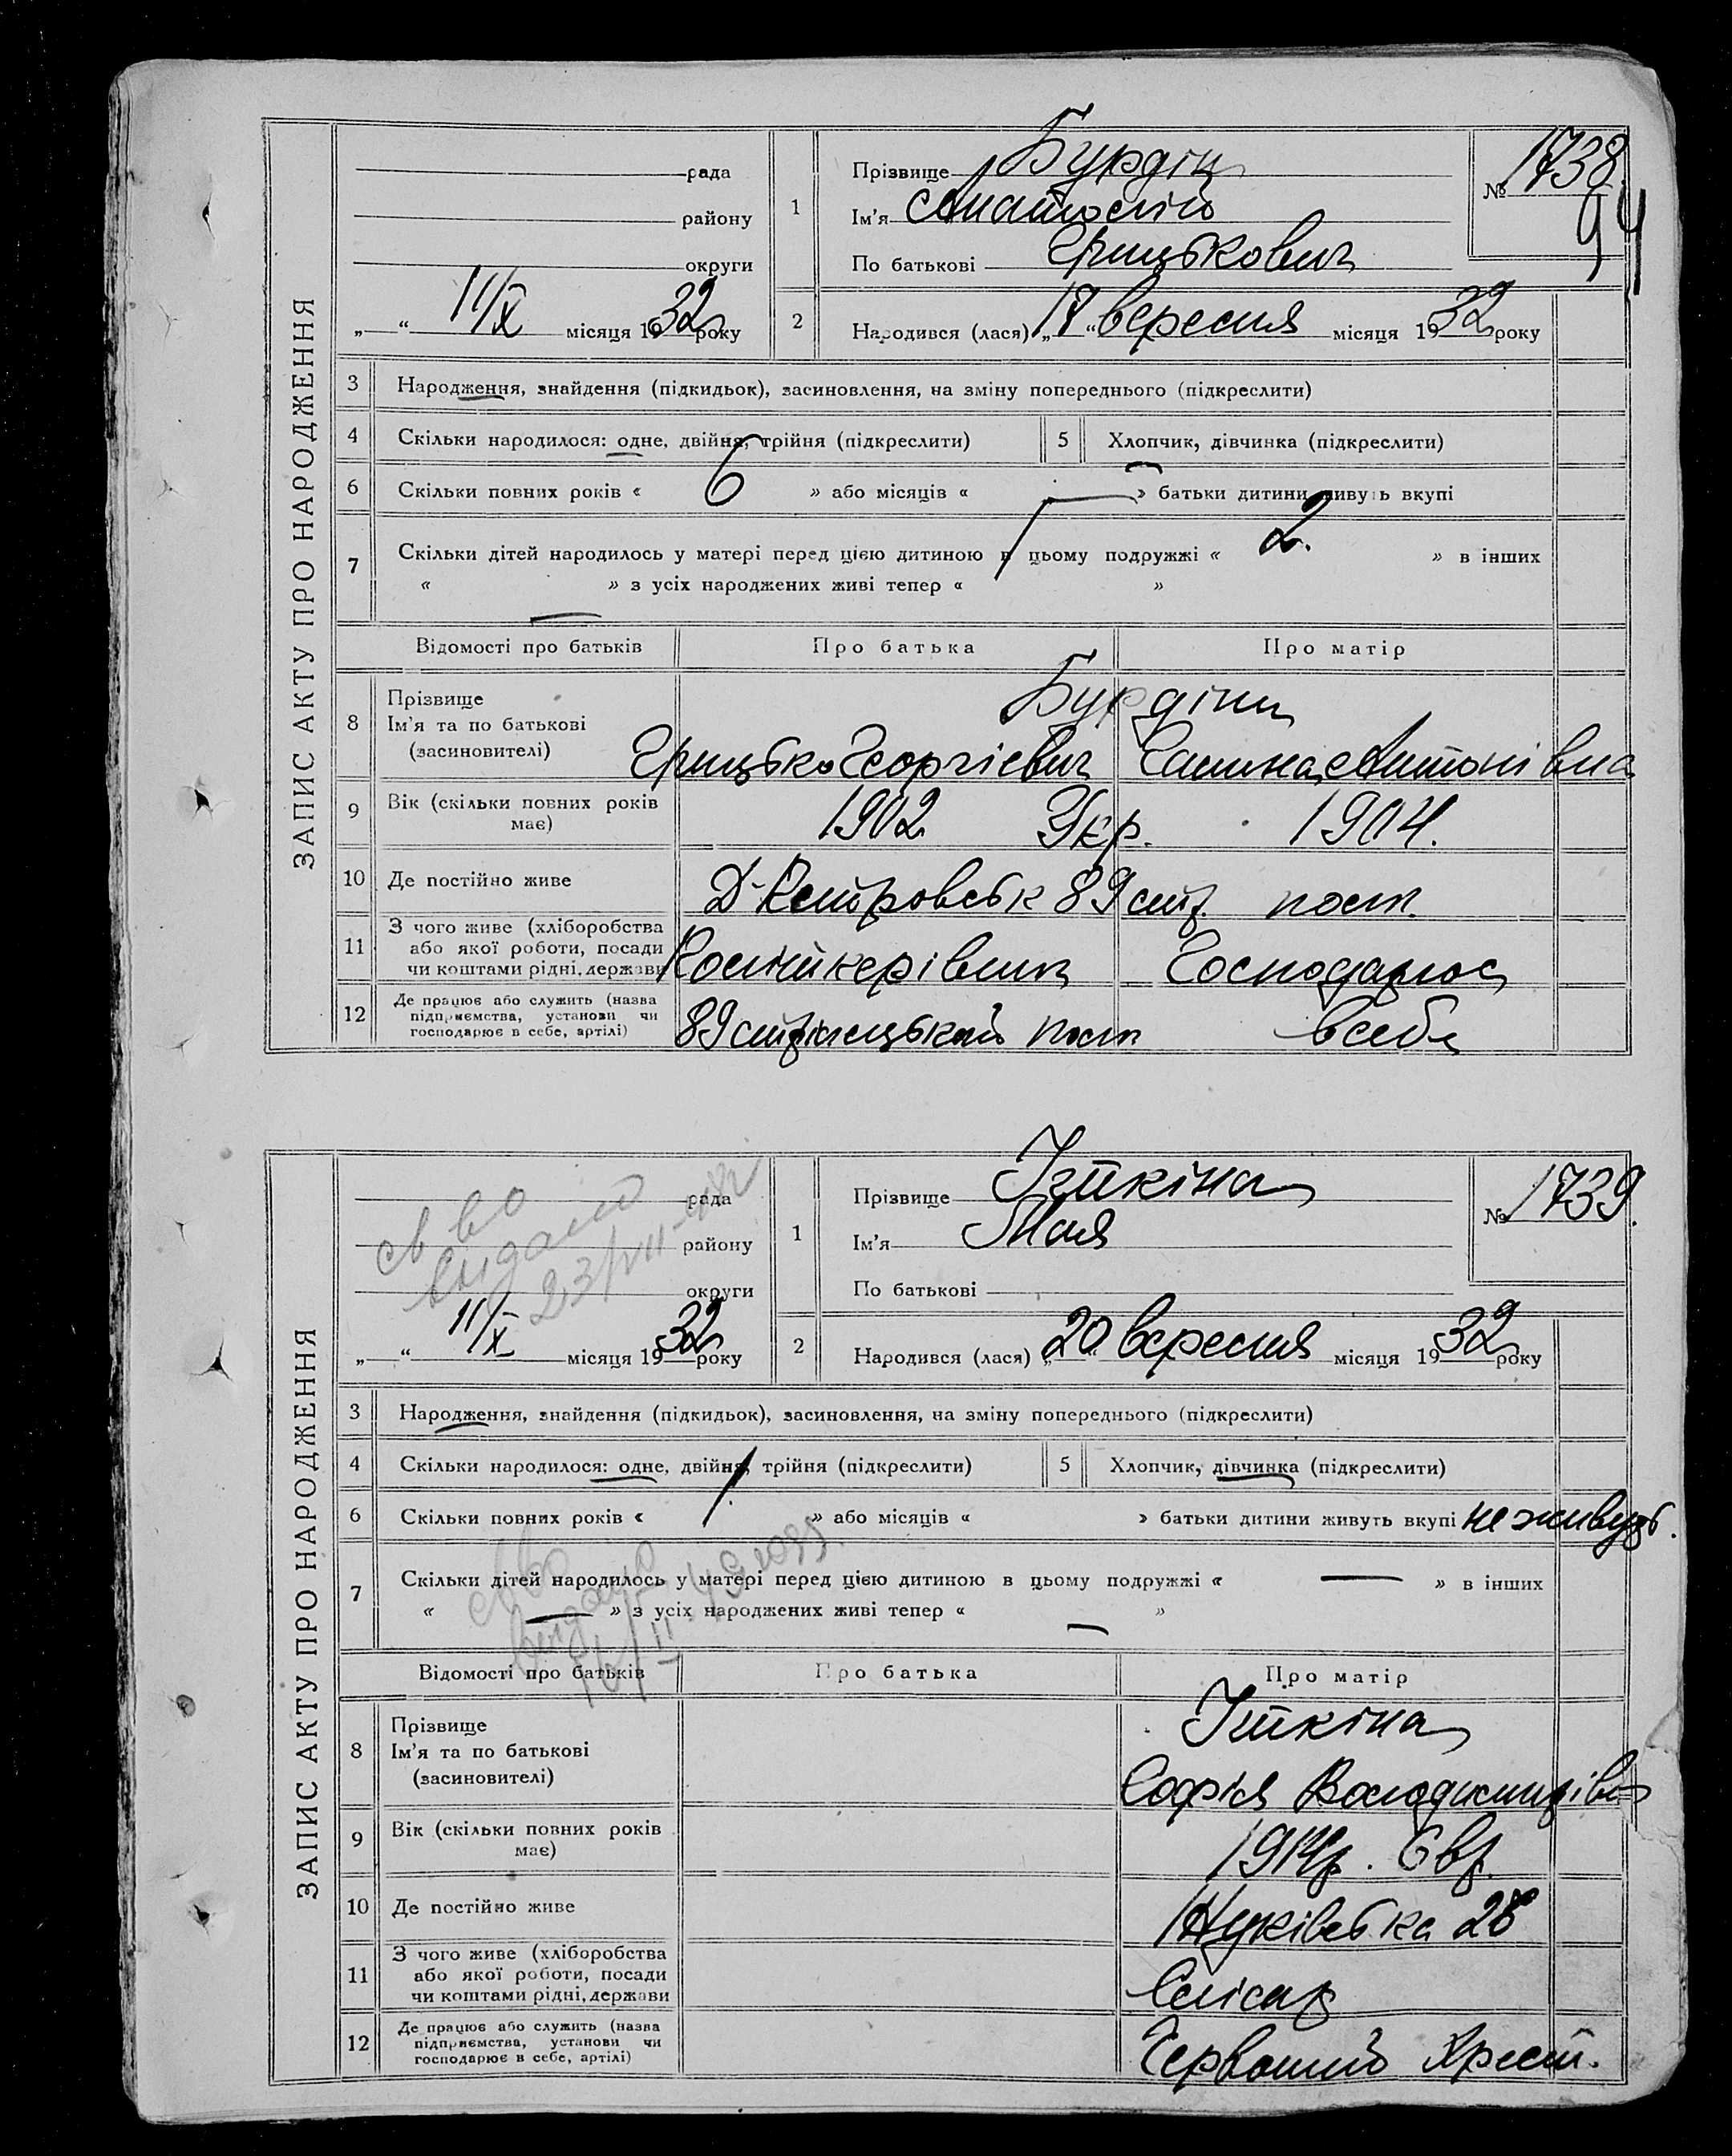 ЗАПИС АКТУ ПРО НАРОДЖЕННЯ
рада
району
округи
„ “ 11/X місяця 1932 року
1
Прізвище Бурдін
Ім'я Анатолій
По батькові Грицькович
№ 1738
94
2
Народився (лася) „17“ вересня місяця 1932 року
3 Народження, знайдення (підкидьок), засиновлення, на зміну попереднього (підкреслити)
4 Скільки народилося: одне, двійня, трійня (підкреслити) 5 Хлопчик, дівчинка (підкреслити)
6 Скільки повних років « 6 » або місяців « — » батьки дитини живуть вкупі
7 Скільки дітей народилось у матері перед цією дитиною в цьому подружжі « 2. » в інших
« — » з усіх народжених живі тепер « »
Відомості про батьків Про батька Про матір
8 Прізвище
Ім'я та по батькові
(засиновителі)
Бурдіни
Грицько Георгієвич Галина Антонівна
9 Вік (скільки повних років має) 1902 Укр. 1904.
10 Де постійно живе Д-Петровськ 89 стр. полк.
11 З чого живе (хліборобства
або якої роботи, посади
чи коштами рідні, держави
Політкерівник Господарює
12 Де працює або служить (назва
підприємства, установи чи
господарює в себе, артілі)
89 стрілецький полк в себе
ЗАПИС АКТУ ПРО НАРОДЖЕННЯ
рада
району
округи
видано
„ “ 11/X місяця 1932 року
1
Прізвище Іткіна
Ім'я Мая
По батькові
№ 1739.
2
Народився (лася) „20 вересня місяця 1932 року
3 Народження, знайдення (підкидьок), засиновлення, на зміну попереднього (підкреслити)
4 Скільки народилося: одне, двійня, трійня (підкреслити) 5 Хлопчик, дівчинка (підкреслити)
6 Скільки повних років « » або місяців « » батьки дитини живуть вкупі не живуть.
7 Скільки дітей народилось у матері перед цією дитиною в цьому подружжі « — » в інших
« — » з усіх народжених живі тепер « — »
Відомості про батьків Про батька Про матір
8 Прізвище
Ім'я та по батькові
(засиновителі)
Іткіна
Софія Володимирівна
9 Вік (скільки повних років має) 1914р. Євр.
10 Де постійно живе Жуківська 28
11 З чого живе (хліборобства
або якої роботи, посади
чи коштами рідні, держави
Слісар
12 Де працює або служить (назва
підприємства, установи чи
господарює в себе, артілі)
Червоний Хрест.